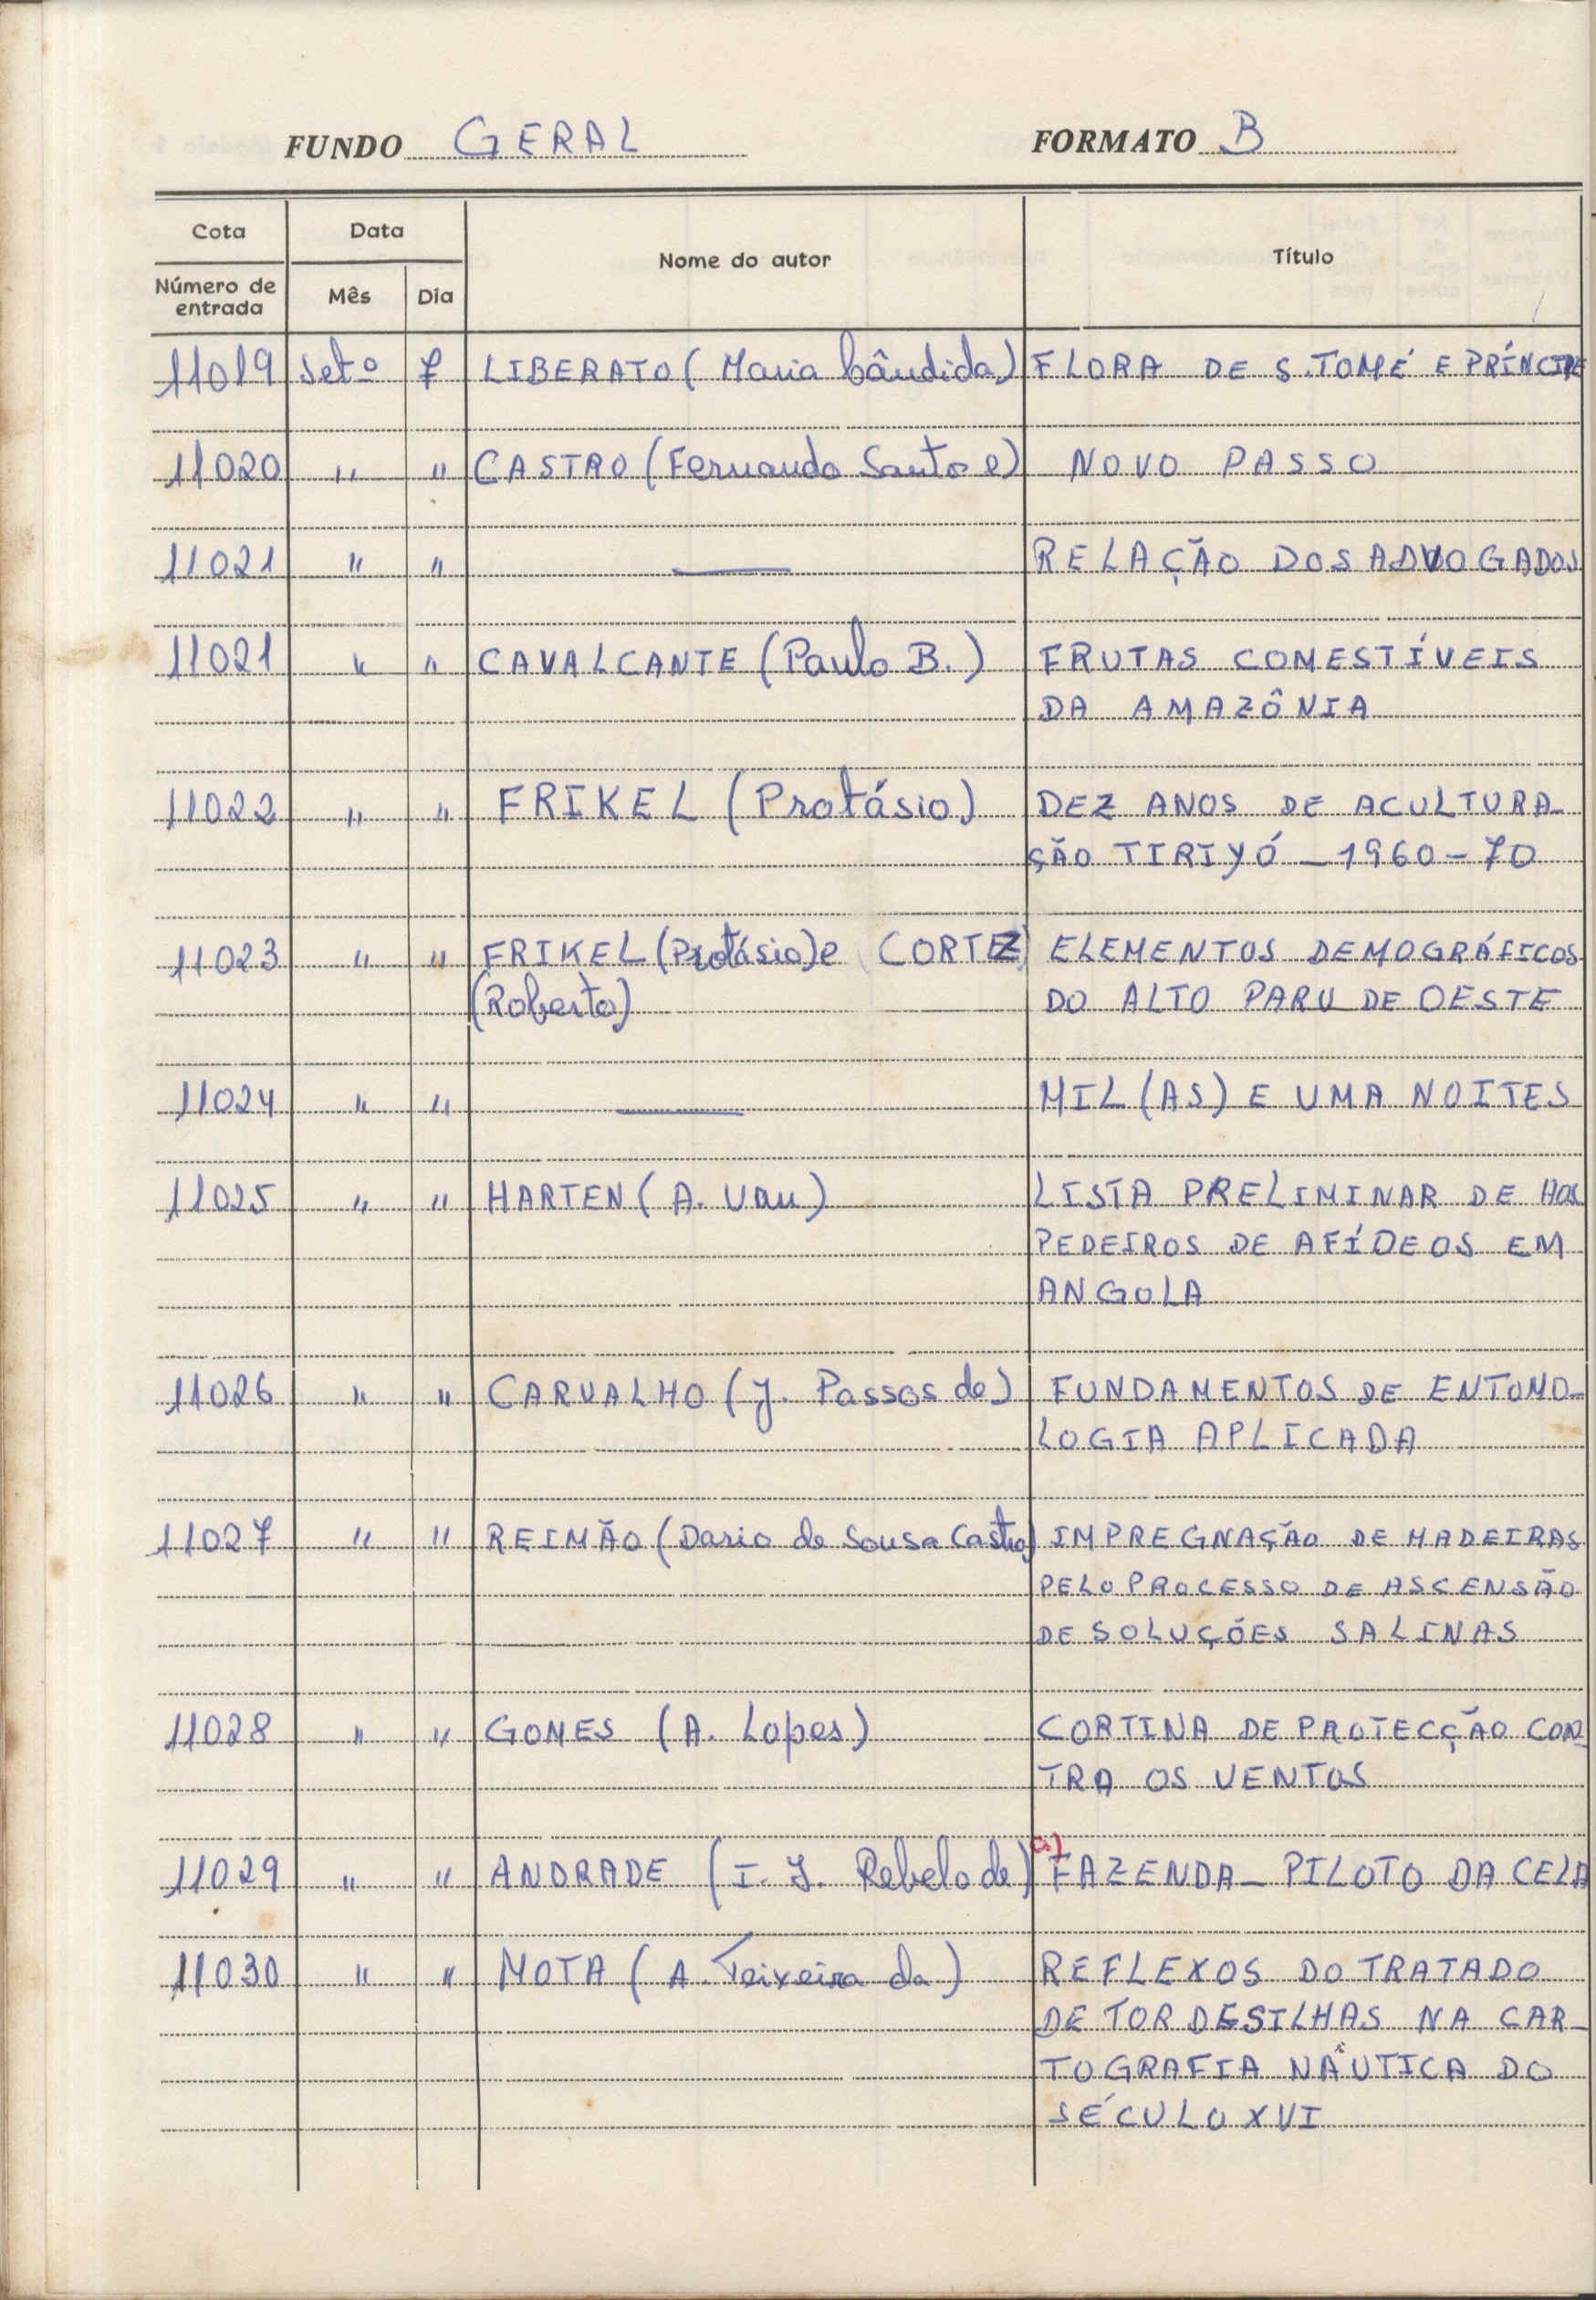 FUNDO GERAL FORMATO B
Cota Data Nome do autor Título
Número de entrada Mês Dia
11019 Setº 7 LIBERATO (Maria Cândida) FLORA DE S. TOMÉ E PRÍNCIPE
11020 " " CASTRO (Fernando Santos e) NOVO PASSO
11021 " " — RELAÇÃO DOS ADVOGADOS
11021 " " CAVALCANTE (Paulo B.) FRUTAS COMESTÍVEIS
DA AMAZÔNIA
11022 " " FRIKEL (Protásio) DEZ ANOS DE ACULTURA-
ÇÃO TIRIYÓ - 1960-70
11023 " " FRIKEL (Protásio) e CORTEZ ELEMENTOS DEMOGRÁFICOS
(Roberto) DO ALTO PARU DE OESTE
11024 " " — MIL (AS) E UMA NOITES
11025 " " HARTEN (A. Van) LISTA PRELIMINAR DE HOS
PEDEIROS DE AFÍDEOS EM
ANGOLA
11026 " " CARVALHO (J. Passos de) FUNDAMENTOS DE ENTOMO-
LOGIA APLICADA
11027 " " REIMÃO (Dario de Sousa Castro) IMPREGNAÇÃO DE MADEIRAS
PELO PROCESSO DE ASCENSÃO
DE SOLUÇÕES SALINAS
11028 " " GOMES (A. Lopes) CORTINA DE PROTECÇÃO CON-
TRA OS VENTOS
11029 " " ANDRADE (I. J. Rebelo de) a) FAZENDA-PILOTO DA CELA
11030 " " MOTA (A. Teixeira da) REFLEXOS DO TRATADO
DE TORDESILHAS NA CAR-
TOGRAFIA NÁUTICA DO
SÉCULO XVI